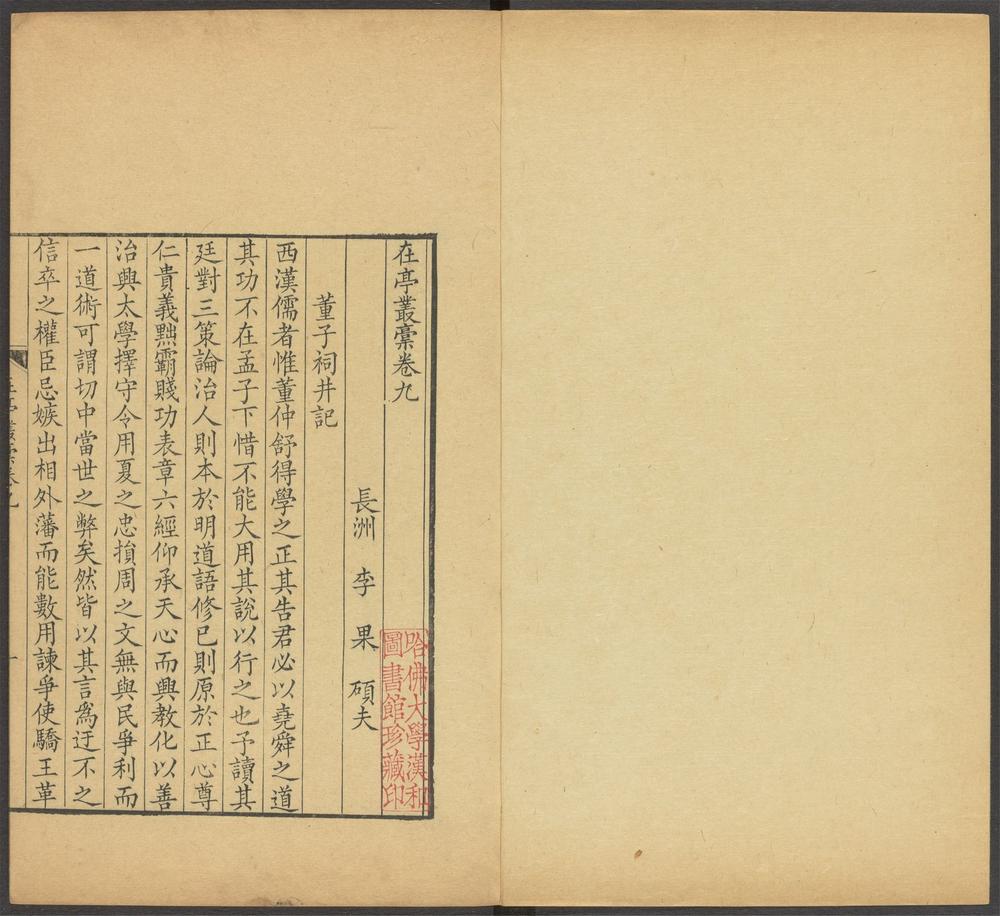 在亭叢稾卷九
長洲 李 果 碩夫
董子祠井記
西漢儒者惟董仲舒得學之正其告君必以堯舜之道
其功不在孟子下惜不能大用其說以行之也予讀其
廷對三策論治人則本於明道語修已則原於正心尊
仁貴義黜霸賤功表章六經仰承天心而興教化以善
治興太學擇守令用夏之忠損周之文無與民爭利而
一道術可謂切中當世之弊矣然皆以其言爲迂不之
信卒之權臣忌嫉出相外藩而能數用諫爭使驕王革
哈佛大學漢和
圖書館珍藏印
一